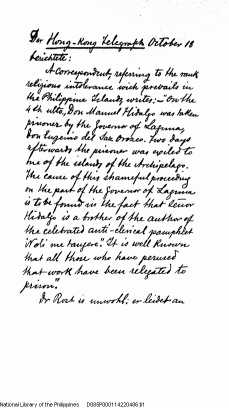 Der Hong-Kong Telegraph October 18
berichtete:
A correspondent, referring to the rank
religious intolerance wich prevails in
the Philippine Islands, writes: "On the
4th ulto, Don Manuel Hidalgo was taken
prisoner by the Governor of Laguna,
Don Eugenio del Saz Orozco. Two days
afterwards the prisoner was exiled to
one of the islands of the Archipelago.
The cause of this shameful proceeding
on the part of the Governor of Laguna
is to be found in the fact that Señor
Hidalgo is a brother of the author of
the celebrated anti-clerical pamphlet
"Noli me tangere." It is well known
that all those who have perused
that work have been relegated to
prison."
Dr Rost is unwohl; er leidet an
National Library of the Philippines